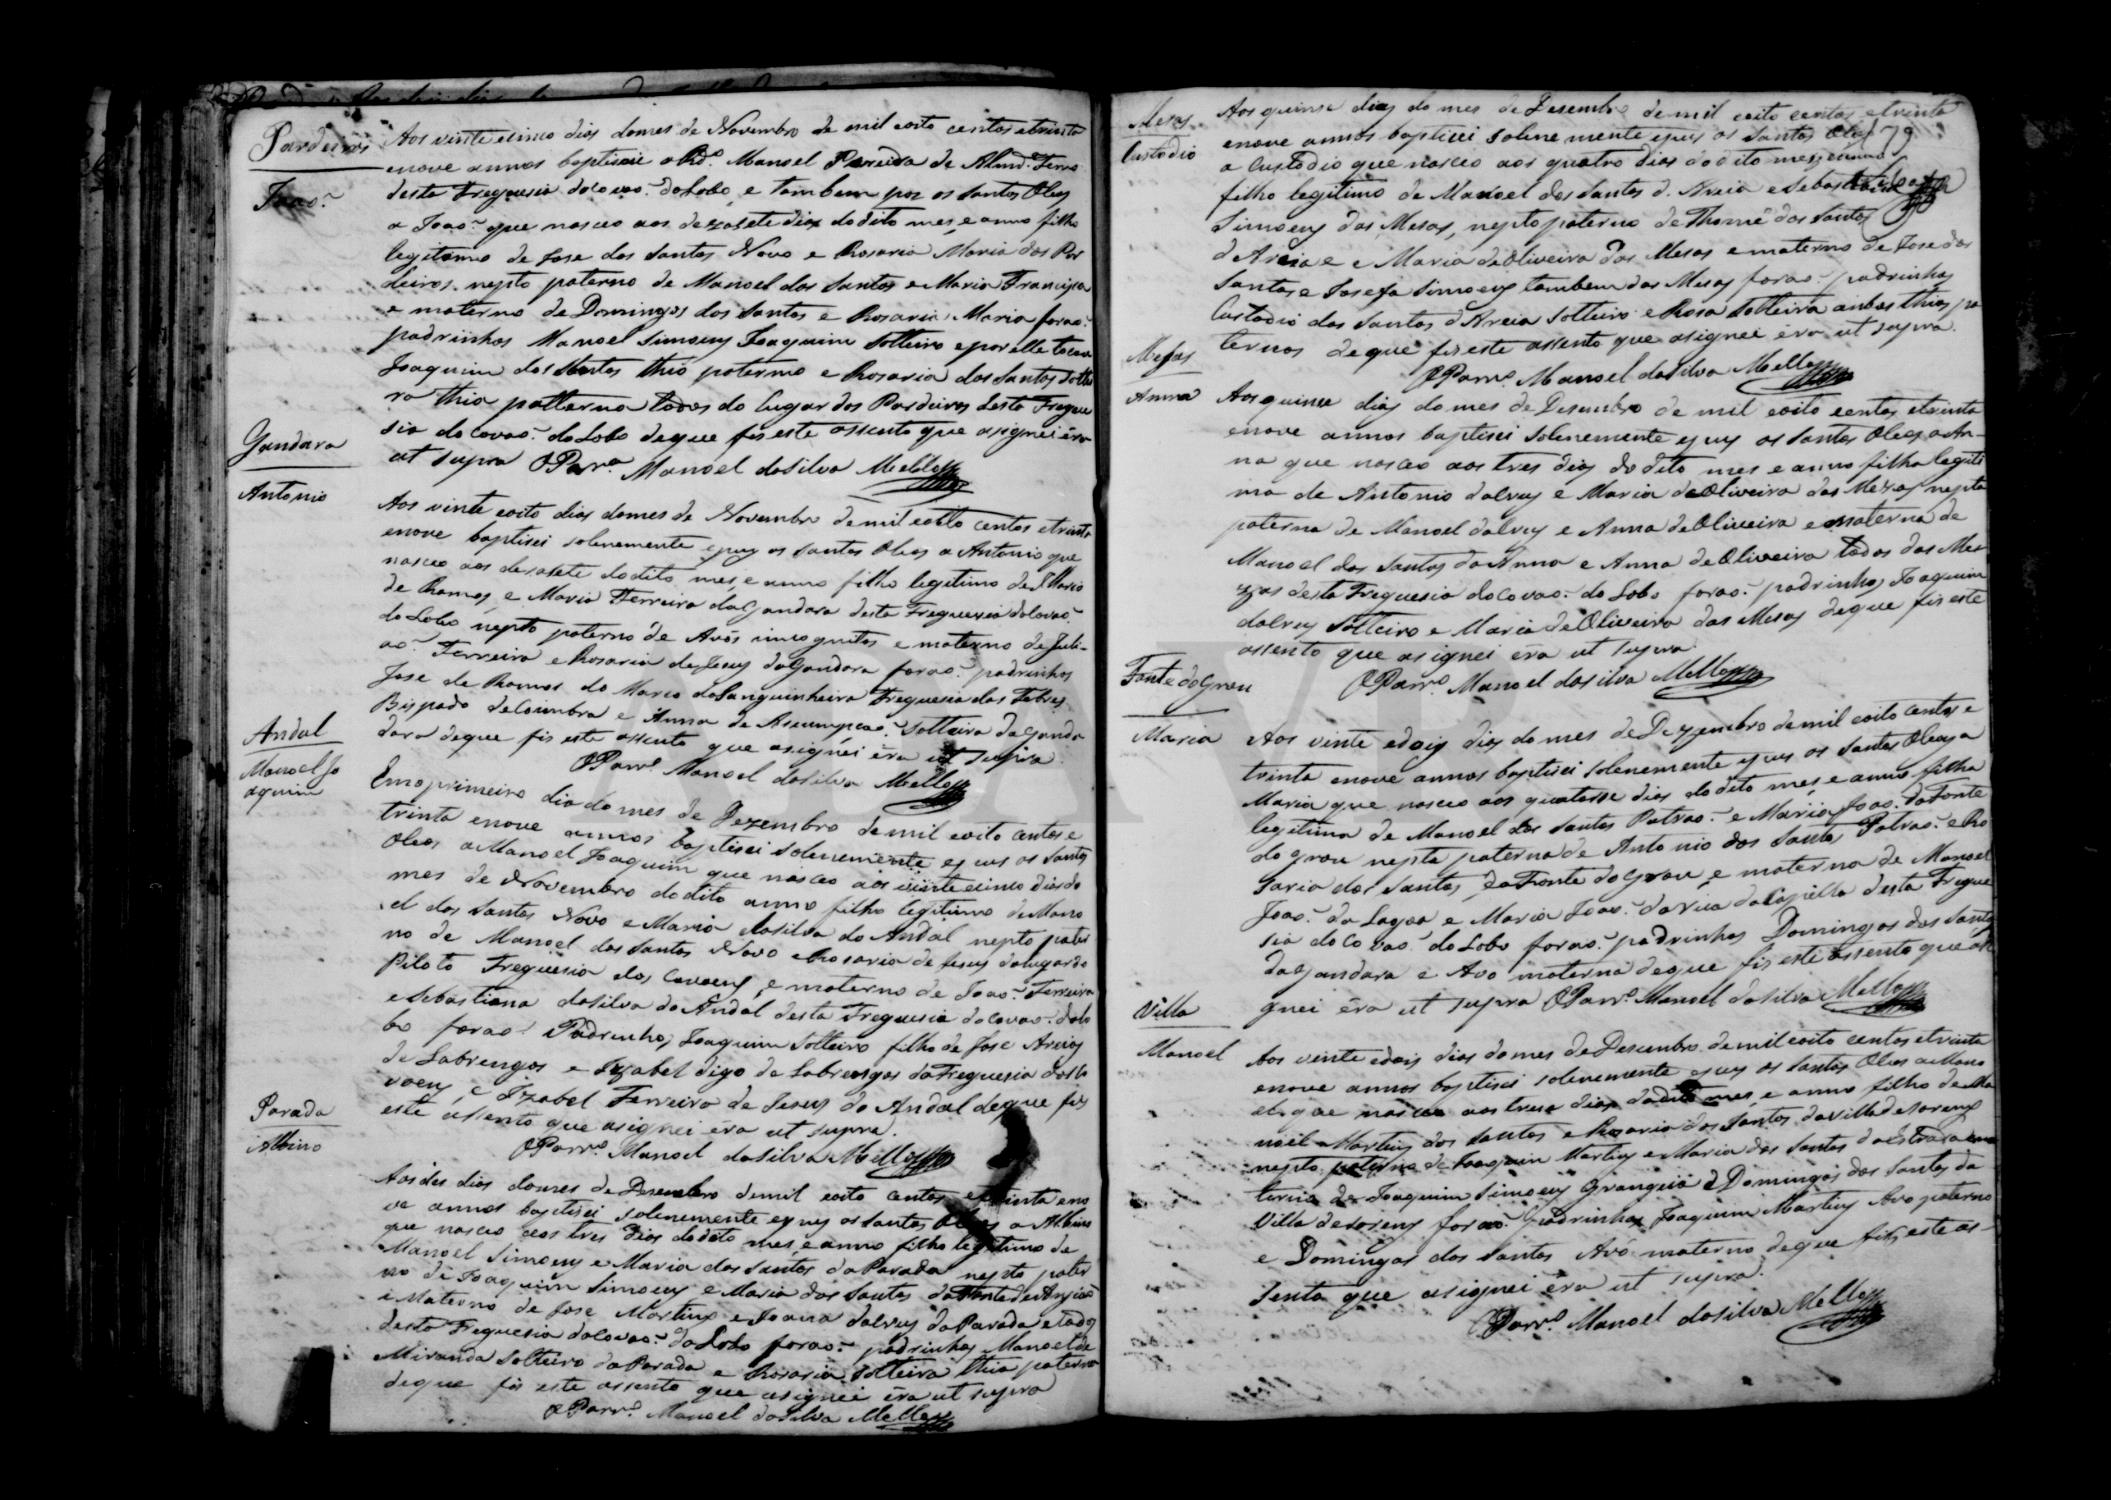 Pardeiros
Joaõ
Aos vinte e cinco dias do mes de Novembro de mil eoito centos etrinta
enove annos baptisou o Rd.º Manoel Pereira de
desta Freguesia do Covaõ do Lobo, e tambem poz os Santos Oleos
a Joaõ que nasceo aos dezasete dias do dito mes, e anno filho
legitimo de Jose dos Santos Novo e Rosaria Maria dos Par
deiros nepto paterno de Manoel dos Santos e Maria Francisca
e materno de Domingos dos Santos e Rosaria Maria foraõ
padrinhos Manoel Simoens Joaquim Solteiro e por elle tocou
Joaquim dos Santos thio paterno e Rosaria dos Santos Soltei
ra thia patterna todos do lugar dos Pardeiros desta Fregue
sia do Covaõ do Lobo deque fis este assento que asignei éra
ut supra O Parr.º Manoel da Silva Mello
Gandara
Antonio
Aos vinte eoito dias do mes de Novembro de mil eoito centos etrinta
enove baptisei solenemente epuz os Santos Oleos a Antonio que
nasceo aos desasete do dito mes, e anno filho legitimo de Mario
de Ramos, e Maria Ferreira da Gandara desta Freguesia do Covaõ
do Lobo, nepto paterno de Avós incognitos e materno de Juli-
aõ Ferreira e Rosaria de Jesus da Gandara foraõ padrinhos
Jose de Ramos do Marco da Sanguinheira Freguesia das Febres
Bispado de Coimbra e Anna de Ascumpçaõ Solteira da Ganda
dara deque fis este assento que asignei éra ut supra
O Parr.º Manoel da Silva Mello
Andal
Manoel Jo
aquim
Em o primeiro dia do mes de Dezembro de mil eoito centos e
trinta enove annos baptisei solenemente epus os Santos
Oleos a Manoel Joaquim que nasceo aos vinte ecinco dias do
mes de Novembro do dito anno filho legitimo de Mano
el dos Santos Novo e Maria da Silva do Andal nepto pater
no de Manoel dos Santos Novo e Rosaria de Jesus do lugar do
Piloto Freguesia dos Covoens, e materno de Joaõ Ferreira
e Sebastiana da Silva do Andal desta Freguesia do Covaõ do Lo
bo foraõ Padrinhos Joaquim Solteiro filho de Jose Areias
de Labrengos e Izabel digo de Labrengos da Freguesia dos Co
voens, e Izabel Ferreira de Jesus do Andal deque fis
este assento que asignei éra ut supra.
O Parr.º Manoel da Silva Mello
Parada
Albino
Aos des dias do mes de Desembro de mil eoito centos etrinta eno
ve annos baptisei solenemente epus os Santos Oleos a Albino
que nasceo aos tres dias do dito mes, e anno filho legitimo de
Manoel Simoens e Maria dos Santos da Parada nepto pater
no de Joaquim Simoens, e Maria dos Santos da Fonte de
e Materno de Jose Martins e Joana dalves da Parada e todos
desta Freguesia do Covaõ do Lobo foraõ padrinhos Manoel de
Miranda Solteiro da Parada e Rosaria Solteira thia paterna
deque fis este assento que asignei éra ut supra
O Parr.º Manoel da Silva Mello
Mesas
Custodio
79
Aos quinse dias do mes de Desembro de mil eoito centos etrinta
enove annos baptisei solenemente epus os Santos Oleos
a Custodio que nasceo aos quatro dias do dito mes, e anno
filho legitimo de Manoel dos Santos d. Areia e Sebastiana
Simoens das Mesas, nepto paterno de Thomé dos Santos
d'Areia e Maria de Oliveira das Mesas e materno de Jose dos
Santos e Josefa Simoens tambem das Mesas foraõ padrinhos
Custodio dos Santos d'Areia Solteiro e Rosa Solteira ambos thios pa
ternos deque fis este assento que asignei éra ut supra.
O Parr.º Manoel da Silva Mello
Mesas
Anna
Aos quinse dias do mes de Desembro de mil eoito centos etrinta
enove annos baptisei solenemente epus os Santos Oleos a An-
na que nasceo aos tres dias do dito mes e anno filha legiti
ma de Antonio dalves e Maria de Oliveira das Mezas nepta
paterna de Manoel dalves e Anna de Oliveira e materna de
Manoel dos Santos da Anna e Anna de Oliveira todos das Me-
zas desta Freguesia do Covaõ do Lobo foraõ padrinhos Joaquim
dalves Solteiro e Maria de Oliveira das Mesas deque fis este
assento que asignei éra ut supra
O Parr.º Manoel da Silva Mello
Fonte do Grou
Maria
Aos vinte edois dias do mes de Dezembro de mil eoito centos e
trinta enove annos baptisei solenemente epus os Santos Oleos a
Maria que nasceo aos quatorse dias do dito mes, e anno filha
legitima de Manoel dos Santos Patraõ e Maria Joaõ da Fonte
do Grou nepta paterna de Antonio dos Santos Patraõ e Ro
saria dos Santos, da Fonte do Grou, e materna de Manoel
Joaõ da Lagoa e Maria Joaõ da rua da Capella desta Fregue
sia do Covaõ do Lobo foraõ padrinhos Domingos dos Santos
da Gandara e Avo materna deque fis este assento que asi
gnei éra ut supra O Parr.º Manoel da Silva Mello
Villa
Manoel
Aos vinte edois dias do mes de Desembro de mil eoito centos etrinta
enove annos baptisei solenemente epus os Santos Oleos a Mano
el que nasceo aos treze dias do dito mes, e anno filho de Ma
noel Martins dos Santos e Rosaria dos Santos da villa de Sorens
nepto paterno de Joaquim Martins e Maria dos Santos da Estrada
terno de Joaquim Simoens Granguia e Domingas dos Santos da
Villa de Sorens foraõ Padrinhos Joaquim Martins Avo paterno
e Domingas dos Santos Avó materna deque fis este as-
sento que asignei éra ut supra.
O Parr.º Manoel da Silva Mello